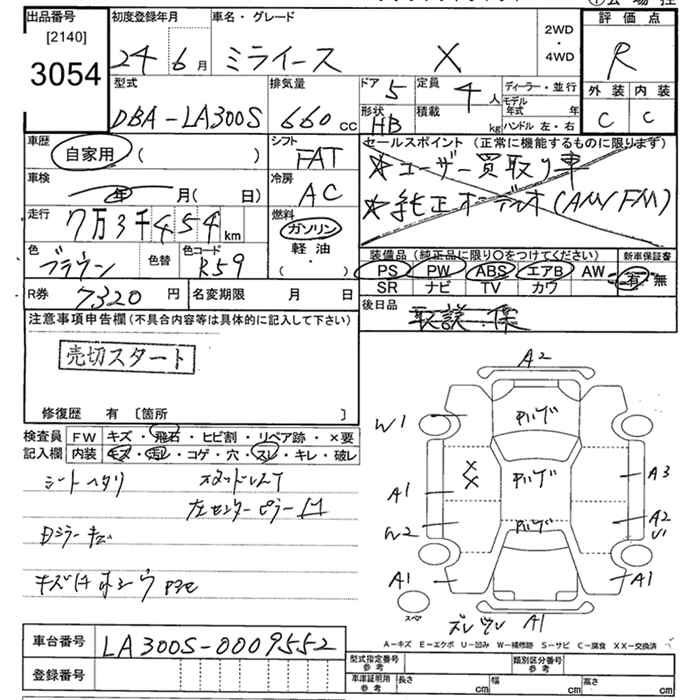 出品番号 [2140] 3054
初度登録年月 24 6月
車名・グレード ミライース X
2WD・4WD
評価点 R
外装 C 内装 C
型式 DBA-LA300S
排気量 660 CC
ドア 5 形状 HB
定員 4人 積載 kg
ディーラー・並行
モデル年式 年
ハンドル 左・右
車歴 自家用 ( )
シフト FAT
車検 年 月( 日)
冷房 AC
走行 7万3千454 km
燃料 ガソリン・軽油・( )
色 ブラウン 色替 色コード R59
セールスポイント (正常に機能するものに限ります)
★ユーザー買取り車
★純正オーデオ(AM/FM)
装備品 (純正品に限り〇をつけてください) 新車保証書
PS PW ABS エアB AW 有・無
SR ナビ TV カワ
R券 7320円 名変期限 月 日
後日品 取説.保
注意事項申告欄 (不具合内容等は具体的に記入して下さい)
売切スタート
修復歴 有 〔箇所 〕
検査員記入欄 FW キズ・飛石・ヒビ割・リペア跡・×要
内装 キズ・汚レ・コゲ・穴・スレ・キレ・破レ
シートヘタリ
左センターピラー
A2
W1
A1
W2
A1
A3
A2
A1
A1
スペア
A-キズ E-エクボ U-凹み W-補修跡 S-サビ C-腐食 XX-交換済
車台番号 LA300S-0009552
登録番号
型式指定番号 参考 類別区分番号 参考
車庫証明用 参考 長さ cm 幅 cm 高さ cm